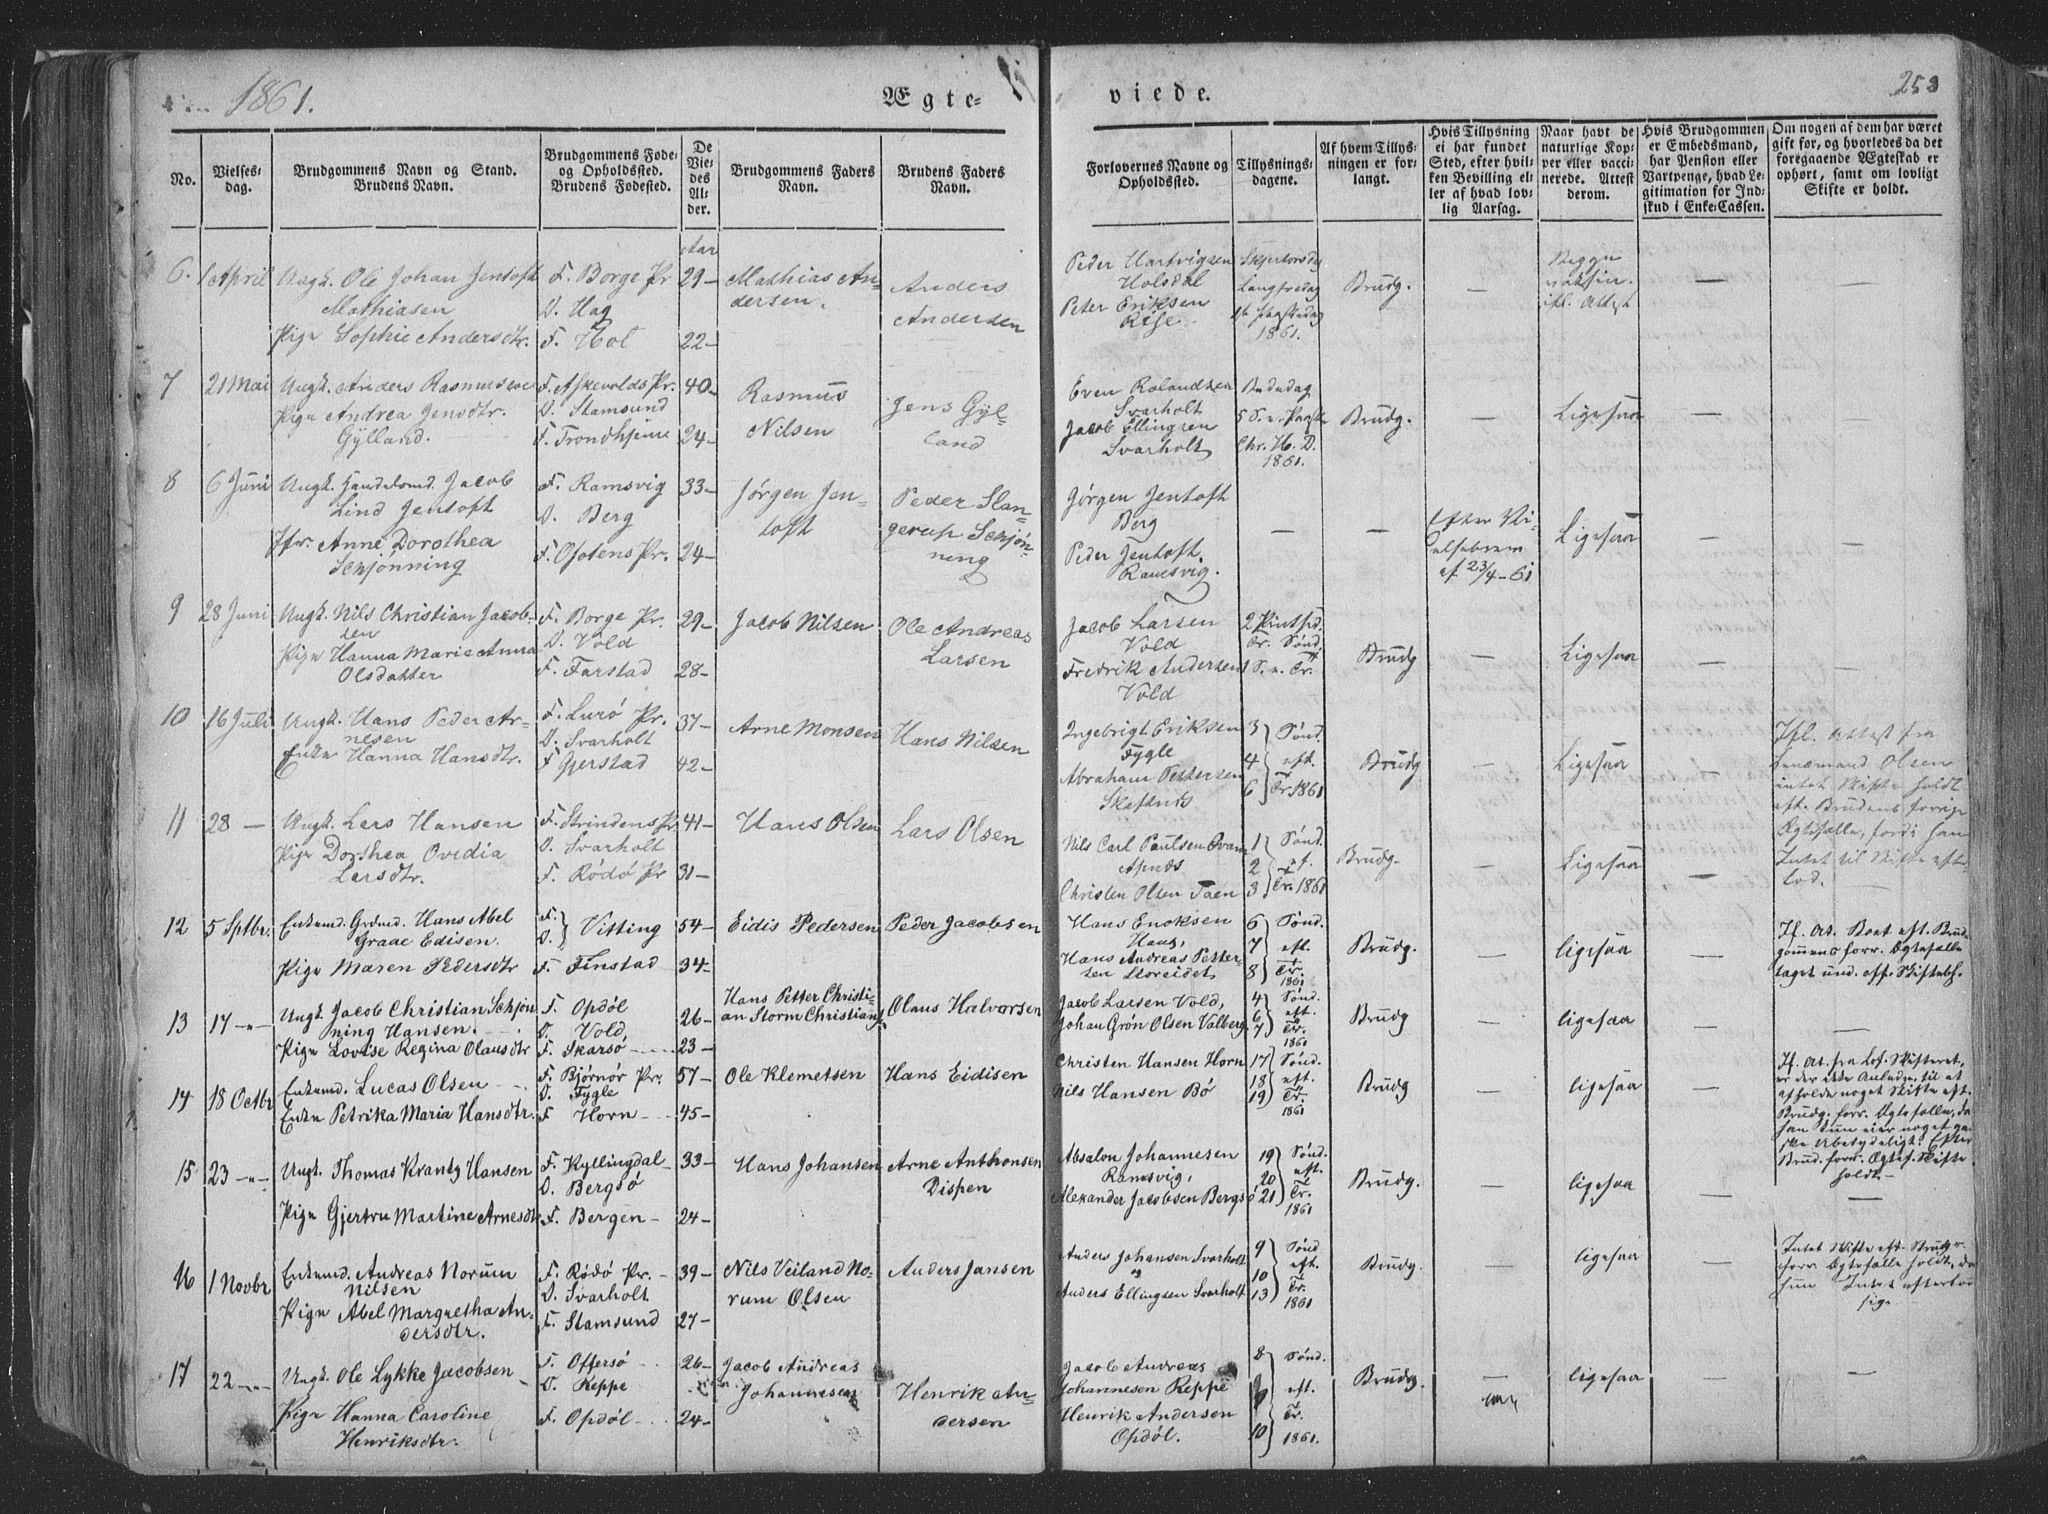 1861.
Ægte-
viede.
253
No.
Vielses-dag.
Brudgommens Navn og Stand.
Brudens Navn.
Brudgommens Føde-
og Opholdssted.
Brudens Fødested.
De
Vie-
des
Al-
der.
Brudgommens Faders
Navn.
Brudens Faders
Navn.
Forlovernes Navne og
Opholdssted.
Tillysnings-
dagene.
Af hvem Tillys-
ningen er for-
langt.
Hvis Tillysning
ei har fundet
Sted, efter hvil-
ken Bevilling el-
ler af hvad lov-
lig Aarsag.
Naar havt de
naturlige Kop-
per eller vacci-
nerede. Attest
derom.
Hvis Brudgommen
er Embedsmand,
har Pension eller
Vartpenge, hvad Le-
gitimation for Ind-
skud i Enke-Cassen.
Om nogen af dem har været
gift før, og hvorledes da det
foregaaende Ægteskab er
ophørt, samt om lovligt
Skifte er holdt.
6. 1 April
Ungk. Ole Johan Jentoft
Mathiasen
Pige Sophie Andersdtr.
F. Borge Pr.
O. Hag
F. Hol
Aar
29-
22-
Mathias An-
dersen.
Anders
Andersen
Peder Hartvigsen
Holsdal
Peter Eriksen
Rise
Skjertorsdag
Langfredag
1861.
Brudg.
Begge
vaksin.
ifl. Attest
7 21 Mai
Ungk. Anders Rasmussen
Pige Andrea Jensdtr.
Gylland.
F. Askevolds Pr.
O. Stamsund
F. Trondhjem
40-
24-
Rasmus
Nilsen
Jens Gyl-
land
Even Rolandsen
Svarholt
Jacob Ellingsen
Svarholt
Bededag
5 S. e. Paaske
Chr. H. D.
1861.
Brudg.
Ligesaa
8 6 Juni
Ungk. Handelsmd. Jacob
Lind Jentoft
Jfr. Anne Dorothea
Schjønning
F. Ramsvig
O. Berg
F. Ofotens Pr.
33-
24-
Jørgen Jen-
toft
Peder Slan-
gerup Schjøn-
ning
Jørgen Jentoft
Berg
Peder Jentoft.
Ramsvig.
Efter Vi-
elsebrev
af 23/4-61
Ligesaa
9 28 Juni
Ungk. Nils Christian Jacob-
sen
Pige Hanna Marie Anna
Olsdatter
F. Borge Pr.
O. Vold
F. Farstad
29-
28-
Jacob Nilsen
Ole Andreas
Larsen
Jacob Larsen
Vold
Fredrik Andersen
Vold
2 Pintsd.
Tr. Sønd.
1 S. e. Tr.
Brudg
Ligesaa
10 16 Juli
Ungk. Hans Peder Ar-
nesen
Enke Hanna Hansdtr.
F. Lurø Pr.
O. Svarholt
F Gjerstad
37-
42-
Arne Monsen
Hans Nilsen
Ingebrigt Eriksen
Fygle
Abraham Pettersen
Skifnes
3 Sønd.
4 eft.
6 Tr 1861
Brudg
Ligesaa
Ifl. Attest fra
Lensmand Olsen
intet Skifte holdt
eft. Brudens forrige
Ægtefælle, fordi han
Intet til Skifte efter-
lod.
11 28 -
Ungk. Lars Hansen
Pige Dorthea Ovedia
Larsdtr.
F. Strindens Pr
O. Svarholt
F. Rödö Pr
41-
31-
Hans Olsen
Lars Olsen
Nils Carl Paulsen Svarv
Apnes
Christen Olsen Taen
1 Sønd.
2 ef.
3 Tr. 1861
Brudg.
Ligesaa
12 5 Sptbr.
Enkemd. Grdmd. Hans Abel
Grade Edisen.
Pige Maren Pedersdtr
F.
O. Vitting
F. Finstad
54-
34-
Eidis Pedersen
Peder Jacobsen
Hans Enoksen
Haug,
Hans Andreas Petter-
sen Storeidet,
6 Sønd.
7 eft.
8 Tr.
1861
Brudg.
ligesaa
If. At. Boet eft. Brud-
gommens forr. Ægtefælle
taget und. off. Skiftebh.
13 17 -"-
Ungk. Jacob Christian Schjøn
ning Hansen.
Pige Lovise Regina Olausdtr
F. Opdöl
O. Vold
F. Skarsö
26-
23-
Hans Petter Christi-
an Storm Christians
Olaus Halvorsen
Jacob Larsen Vold,
Johan Grön Olsen Valberg
4 Sønd.
6 eft.
7 Tr.
1861
Brudg
ligesaa
14 18 Octbr
Enkemd. Lucas Olsen
Enke Petrika Maria Hansdtr.
F. Bjørnör Pr.
O. Fygle
F Horn
57-
45-
Ole Klemetsen
Hans Eidisen
Christen Hansen Horn
Nils Hansen Bö
17 Sønd.
18 eft.
19 Tr.
1861
Brudg
ligesaa
If. At. fra Lof. Skifteret,
er der ikke Anledn. til at
afholde noget Skifte eft.
Brudg. forr. Ægtefælle, da
han kun eier noget gan-
ske Ubetydeligt. Efter
Brud. forr. Ægtef. Skifte
holdt.-
15 23 -"-
Ungk. Thomas Krantz Hansen
Pige Gjertru Martine Arnesdtr
F. Kyllingdal
O. Bergsö
F. Bergen
33-
24-
Hans Johansen
Arne Anthonsen
Dispen
Absalon Johannesen
Ramsvig,
Alexander Jacobsen Bergsö
19 Sønd.
20 eft.
21 Tr.
1861
Brudg.
ligesaa
16 1 Novbr
Enkemd. Andreas Norum
Nilsen
Pige Abel Margretha An-
dersdtr.
F. Rödö Pr.
O. Svarholt
F. Stamsund
39-
27-
Nils Veiland No-
rum Olsen
Anders Jansen
Anders Johansen Svarholt
og
Anders Ellingsen Svarholt
9 Sønd
10 eft.
13 Tr.
1861
Brudg.
ligesaa
Intet Skifte eft. Brudgs
forr. Ægtefælle holdt, da
hun Intet efterlod
sig.
17 22 -"-
Ungk. Ole Lykke Jacobsen
Pige Hanna Caroline
Henriksdtr.
F. Offersö
O. Reppe
F. Opdöl
26-
24-
Jacob Andreas
Johannesen
Henrik An-
dersen
Jacob Andreas
Johannesen Reppe
Henrik Andersen
Opdöl.
8 Sønd.
9 eft.
10 Tr.
1861.
Brudg.
ligesaa